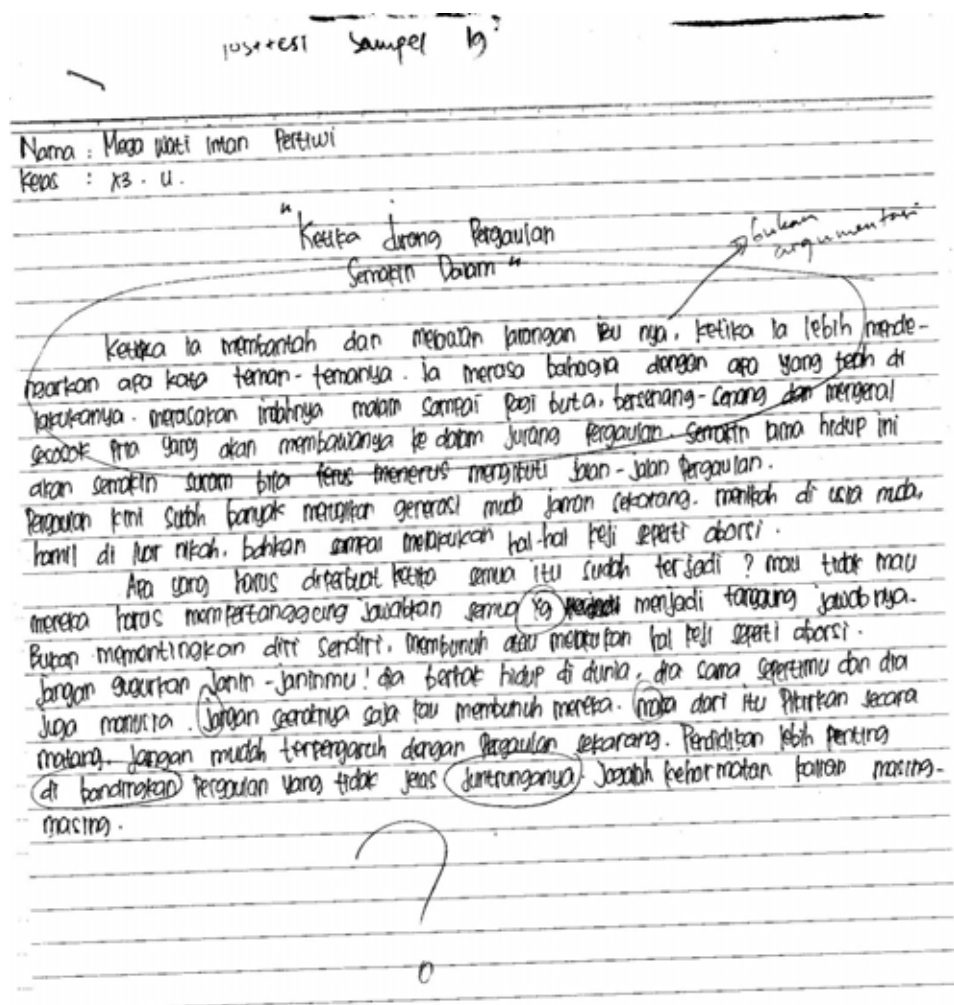 posttest Sampel 19
Nama : Mega wati intan Pertiwi
Kelas : X3 . U .
"Ketika Jurang Pergaulan
Semakin Dalam"
bukan
argumentasi
Ketika ia membantah dan larangan ibu nya, ketika ia lebih mende-
ngarkan apa kata teman-temanya. Ia merasa bahagia dengan apa yang telah di
lakukanya. merasakan indahnya malam sampai pagi buta, bersenang-senang dan mengenal
sesosok pria yang akan membawanya ke dalam jurang pergaulan. semakin lama hidup ini
akan semakin suram bila terus menerus mengikuti jalan-jalan pergaulan.
Pergaulan kini sudah banyak merugikan generasi muda jaman sekarang. menikah di usia muda,
hamil di luar nikah, bahkan sampai melakukan hal-hal keji seperti aborsi.
Apa yang harus diperbuat ketika semua itu sudah terjadi ? mau tidak mau
mereka harus mempertanggung jawabkan semua yg menjadi tanggung jawabnya.
Bukan mementingkan diri sendiri, membunuh atau melakukan hal keji seperti aborsi.
jangan gugurkan Janin-janinmu! dia berhak hidup di dunia, dia sama sepertimu dan dia
juga manusia. Jangan seenaknya saja kau membunuh mereka. maka dari itu Pikirkan secara
matang. jangan mudah terpengaruh dengan pergaulan sekarang. Pendidikan lebih penting
di bandingkan pergaulan yang tidak jelas juntrunganya. Jagalah kehormatan kalian masing-
masing.
?